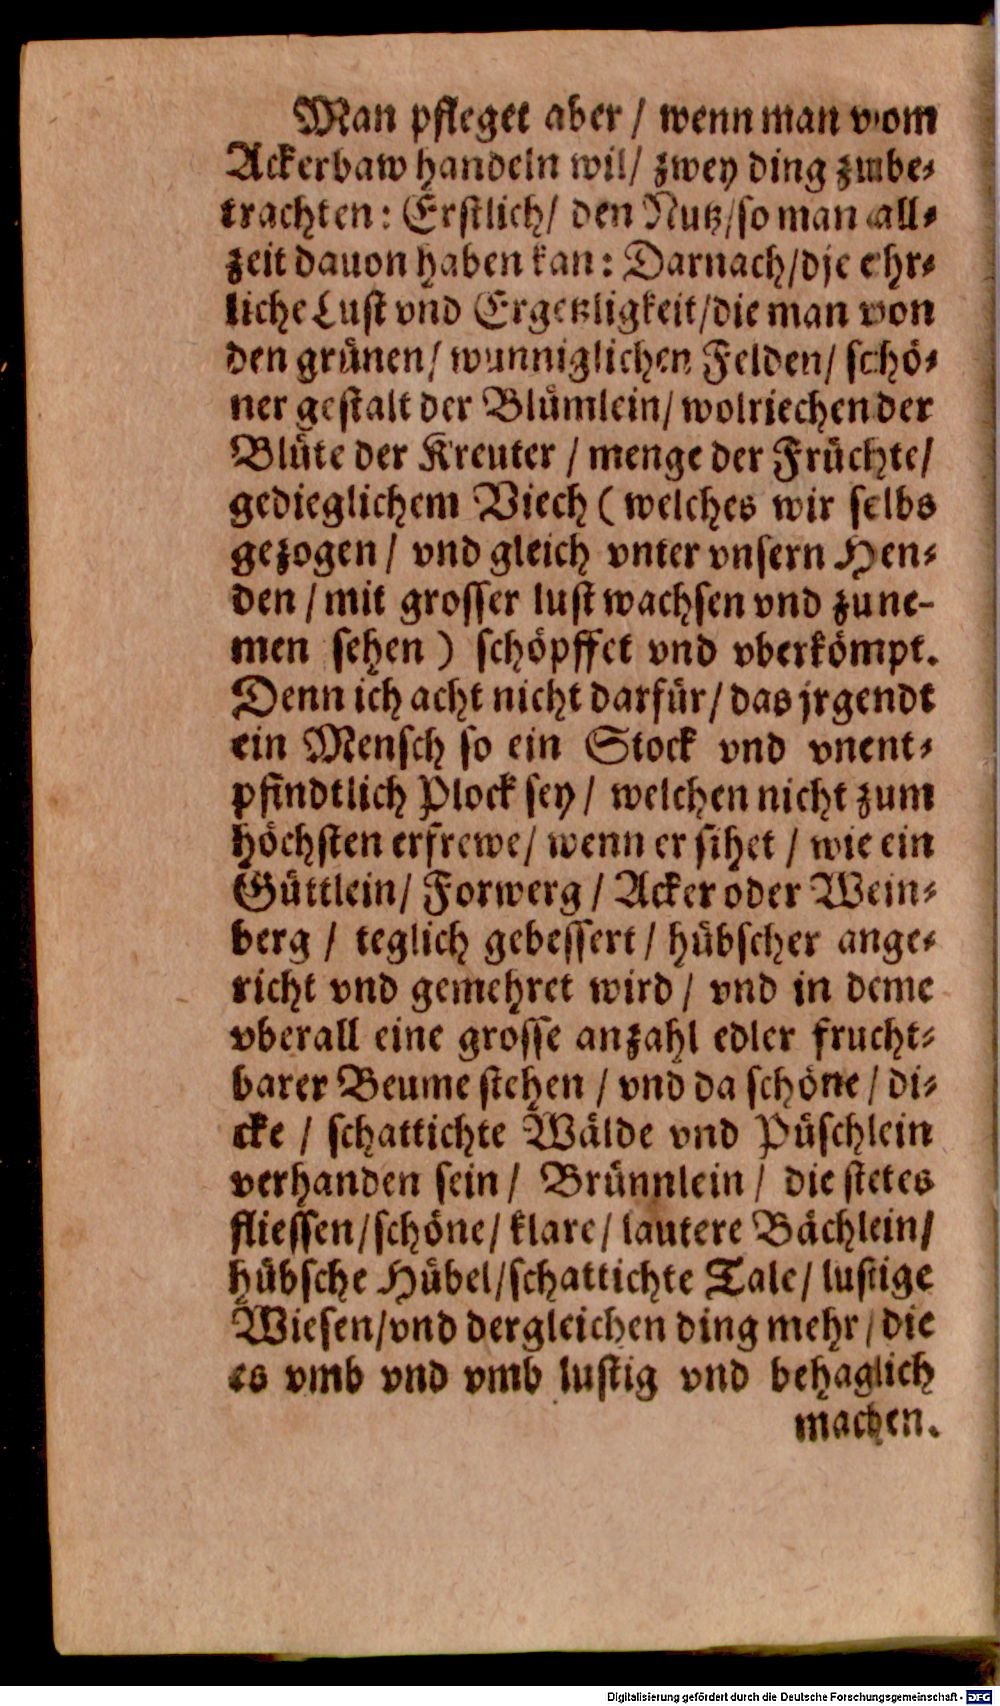 Man pfleget aber / wenn man vom
Ackerbaw handeln wil / zwey ding zube⸗
trachten : Erstlich / den Nutz / so man all⸗
zeit dauon haben kan : Darnach / die ehr⸗
liche Lust vnd Ergetzligkeit / die man von
den grünen / wunniglichen Felden / schö⸗
ner gestalt der Blümlein / wolriechender
Blüte der Kreuter / menge der Früchte /
gedieglichem Viech ( welches wir selbs
gezogen / vnd gleich vnter vnsern Hen⸗
den / mit grosser lust wachsen vnd zune-
men sehen ) schöpffet vnd vberkömpt.
Denn ich acht nicht darfür / das jrgendt
ein Mensch so ein Stock vnd vnent⸗
pfindtlich Plock sey / welchen nicht zum
höchsten erfrewe / wenn er sihet / wie ein
Güttlein / Forwerg / Acker oder Wein⸗
berg / teglich gebessert / hübscher ange⸗
richt vnd gemehret wird / vnd in deme
vberall eine grosse anzahl edler frucht⸗
barer Beume stehen / vnd da schöne / di⸗
cke / schattichte Wälde vnd Püschlein
verhanden sein / Brünnlein / die stetes
fliessen / schöne / klare / lautere Bächlein /
hübsche Hübel / schattichte Tale / lustige
Wiesen / vnd dergleichen ding mehr / die
es vmb vnd vmb lustig vnd behaglich
machen.
Digitalisierung gefördert durch die Deutsche Forschungsgemeinschaft - DFG